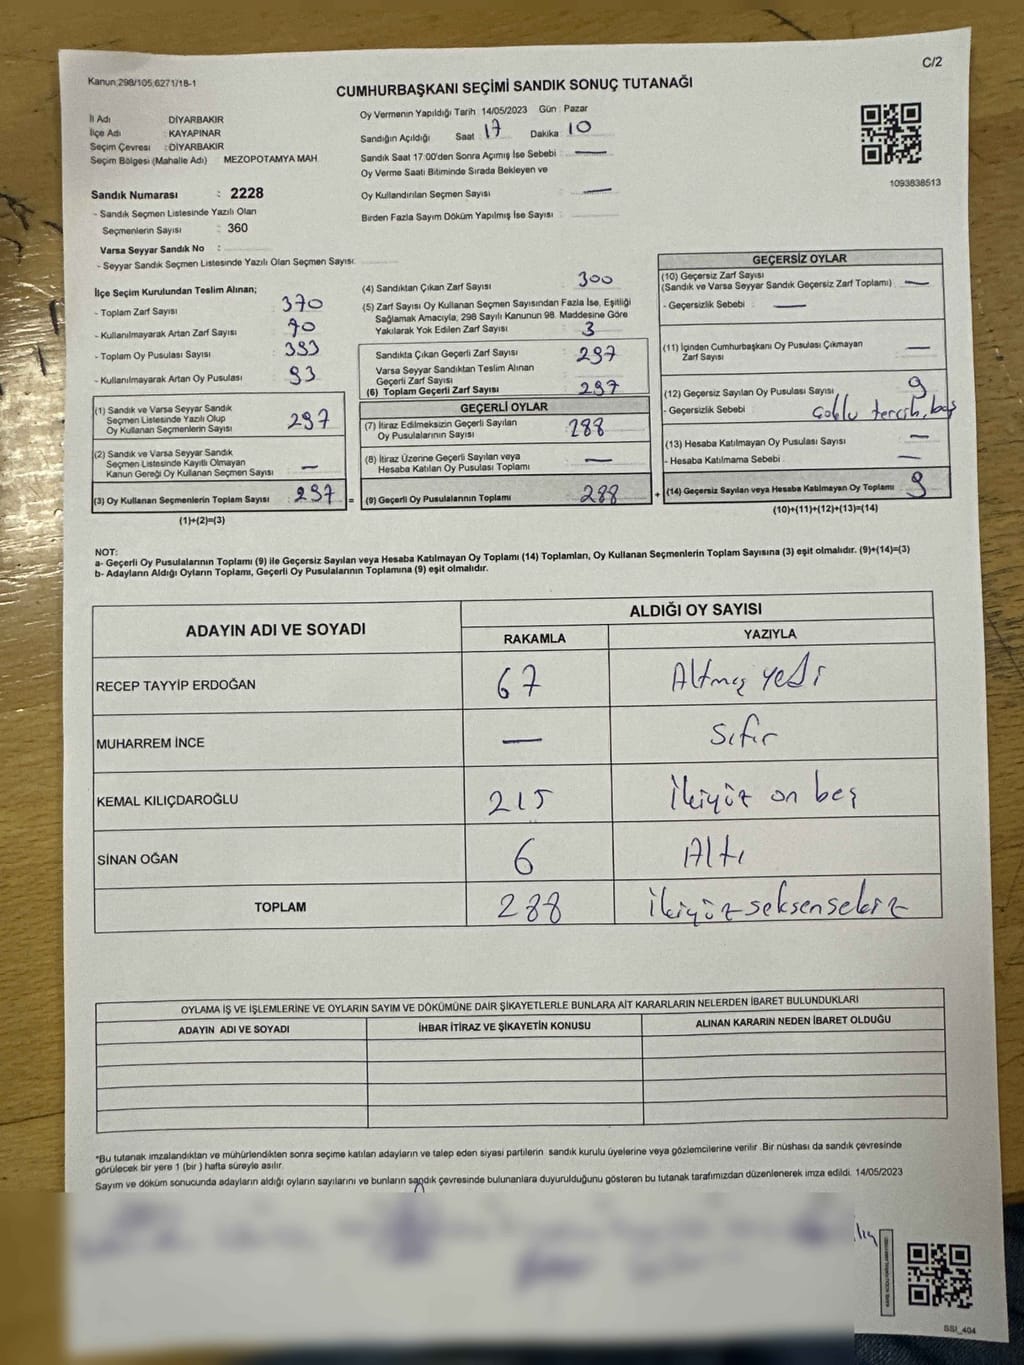 C/2
Kanun:298/105;6271/18-1
CUMHURBAŞKANI SEÇİMİ SANDIK SONUÇ TUTANAĞI
İl Adı DİYARBAKIR
İlçe Adı : KAYAPINAR
Seçim Çevresi : DİYARBAKIR
Seçim Bölgesi (Mahalle Adı) MEZOPOTAMYA MAH.
Sandık Numarası : 2228
- Sandık Seçmen Listesinde Yazılı Olan
Seçmenlerin Sayısı : 360
Varsa Seyyar Sandık No :
- Seyyar Sandık Seçmen Listesinde Yazılı Olan Seçmen Sayısı:
Oy Vermenin Yapıldığı Tarih 14/05/2023 Gün : Pazar
Sandığın Açıldığı Saat : 17 Dakika : 10
Sandık Saat 17:00'den Sonra Açımış İse Sebebi : —
Oy Verme Saati Bitiminde Sırada Bekleyen ve
Oy Kullandırılan Seçmen Sayısı : —
Birden Fazla Sayım Döküm Yapılmış İse Sayısı :
1093838513
İlçe Seçim Kurulundan Teslim Alınan;
- Toplam Zarf Sayısı : 370
- Kullanılmayarak Artan Zarf Sayısı : 70
- Toplam Oy Pusulası Sayısı : 393
- Kullanılmayarak Artan Oy Pusulası : 93
(1) Sandık ve Varsa Seyyar Sandık
Seçmen Listesinde Yazılı Olup
Oy Kullanan Seçmenlerin Sayısı : 297
(2) Sandık ve Varsa Seyyar Sandık
Seçmen Listesinde Kayıtlı Olmayan
Kanun Gereği Oy Kullanan Seçmen Sayısı : —
(3) Oy Kullanan Seçmenlerin Toplam Sayısı : 297 =
(1)+(2)=(3)
(4) Sandıktan Çıkan Zarf Sayısı : 300
(5) Zarf Sayısı Oy Kullanan Seçmen Sayısından Fazla İse, Eşitliği
Sağlamak Amacıyla, 298 Sayılı Kanunun 98. Maddesine Göre
Yakılarak Yok Edilen Zarf Sayısı : 3
Sandıkta Çıkan Geçerli Zarf Sayısı : 297
Varsa Seyyar Sandıktan Teslim Alınan
Geçerli Zarf Sayısı
(6) Toplam Geçerli Zarf Sayısı : 297
GEÇERLİ OYLAR
(7) İtiraz Edilmeksizin Geçerli Sayılan
Oy Pusulalarının Sayısı : 288
(8) İtiraz Üzerine Geçerli Sayılan veya
Hesaba Katılan Oy Pusulası Toplamı : —
(9) Geçerli Oy Pusulalarının Toplamı : 288 +
GEÇERSİZ OYLAR
(10) Geçersiz Zarf Sayısı
(Sandık ve Varsa Seyyar Sandık Geçersiz Zarf Toplamı) : —
- Geçersizlik Sebebi : —
(11) İçinden Cumhurbaşkanı Oy Pusulası Çıkmayan
Zarf Sayısı : —
(12) Geçersiz Sayılan Oy Pusulası Sayısı : 9
- Geçersizlik Sebebi : Çoklu tercih, boş
(13) Hesaba Katılmayan Oy Pusulası Sayısı : —
- Hesaba Katılmama Sebebi : —
(14) Geçersiz Sayılan veya Hesaba Katılmayan Oy Toplamı : 9
(10)+(11)+(12)+(13)=(14)
NOT:
a- Geçerli Oy Pusulalarının Toplamı (9) ile Geçersiz Sayılan veya Hesaba Katılmayan Oy Toplamı (14) Toplamları, Oy Kullanan Seçmenlerin Toplam Sayısına (3) eşit olmalıdır. (9)+(14)=(3)
b- Adayların Aldığı Oyların Toplamı, Geçerli Oy Pusulalarının Toplamına (9) eşit olmalıdır.
ADAYIN ADI VE SOYADI ALDIĞI OY SAYISI
RAKAMLA YAZIYLA
RECEP TAYYİP ERDOĞAN 67 Altmış yedi
MUHARREM İNCE — sıfır
KEMAL KILIÇDAROĞLU 215 İkiyüz on beş
SİNAN OĞAN 6 Altı
TOPLAM 288 İkiyüzseksensekiz
OYLAMA İŞ VE İŞLEMLERİNE VE OYLARIN SAYIM VE DÖKÜMÜNE DAİR ŞİKAYETLERLE BUNLARA AİT KARARLARIN NELERDEN İBARET BULUNDUKLARI
ADAYIN ADI VE SOYADI İHBAR İTİRAZ VE ŞİKAYETİN KONUSU ALINAN KARARIN NEDEN İBARET OLDUĞU
*Bu tutanak imzalandıktan ve mühürlendikten sonra seçime katılan adayların ve talep eden siyasi partilerin sandık kurulu üyelerine veya gözlemcilerine verilir. Bir nüshası da sandık çevresinde
görülecek bir yere 1 (bir ) hafta süreyle asılır.
Sayım ve döküm sonucunda adayların aldığı oyların sayılarını ve bunların sandık çevresinde bulunanlara duyurulduğunu gösteren bu tutanak tarafımızdan düzenlenerek imza edildi. 14/05/2023
SSI_404